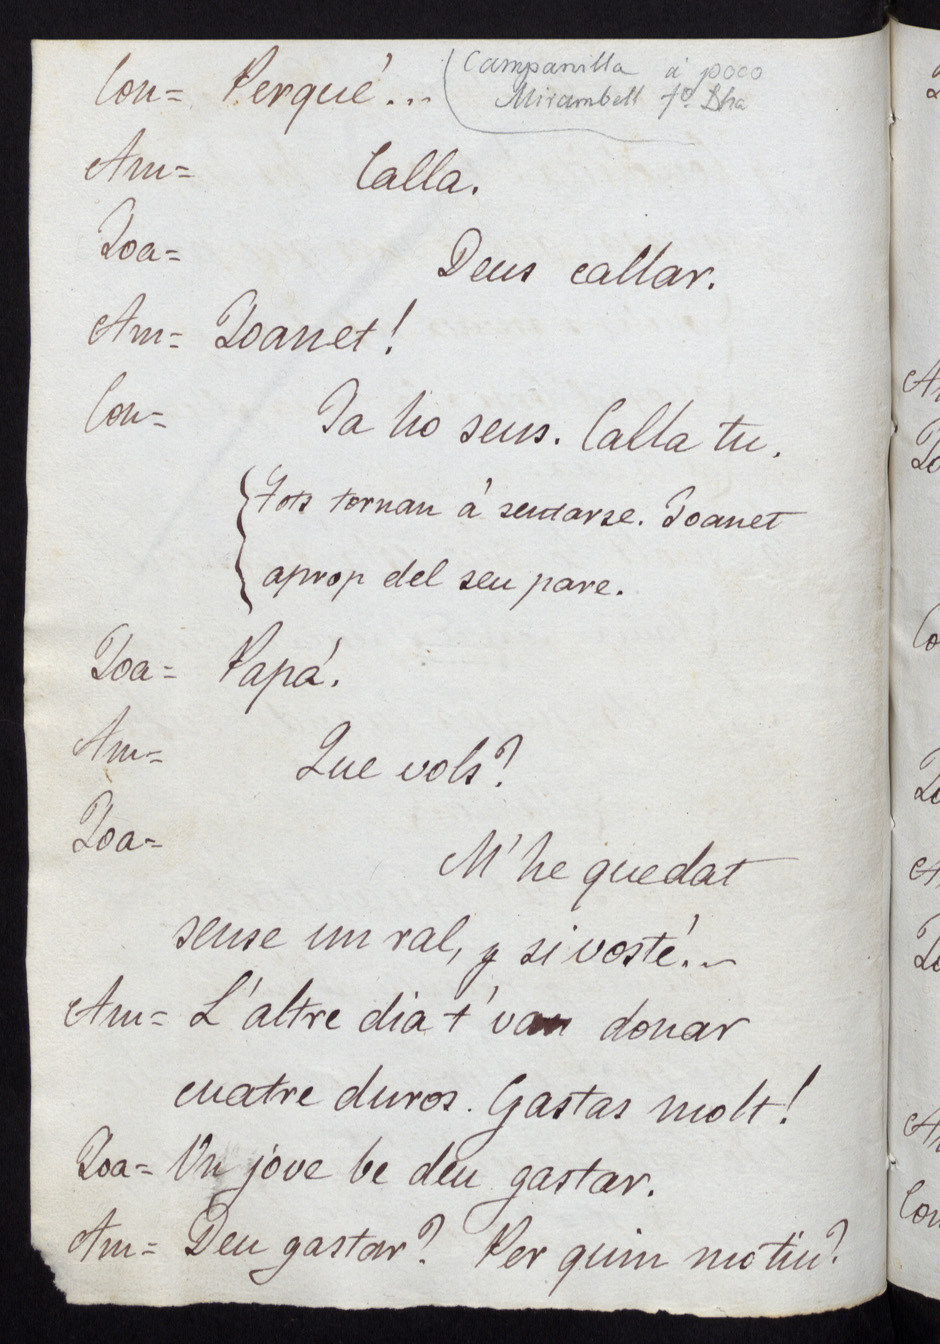 Con= Perqué...
(Campanilla á
Mirambell fo. Dha
Am= Calla.
Joa= Deus callar.
Am= Joanet!
Con= Ja ho sens. Calla tu.
{Tots tornan á sentarse. Joanet
aprop del seu pare.
Joa= Papá.
Am= Que vols?
Joa= M'he quedat
sense un ral, y si vosté...
Am= L'altre dia t'van donar
cuatre duros. Gastas molt!
Joa= Un jove be deu gastar.
Am= Deu gastar? Per quin motiu?
Am
Jo
Co
Jo
Am
Jo
Am
Con